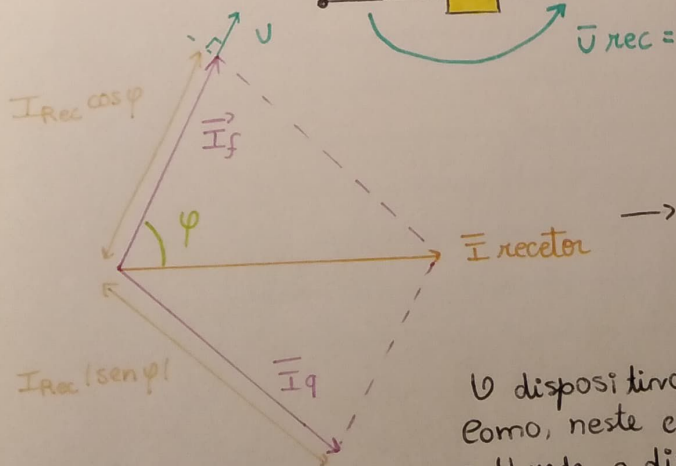 U
U rec =
I Rec cos φ
I f
φ
I recetor
I Rec |sen φ|
I q
O dispositivo
Como, neste e